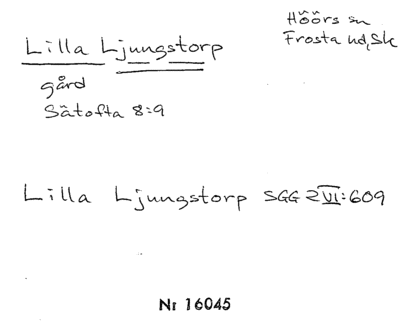 Höörs sn
Frosta hd, Sk
Lilla Ljungstorp
gård
Sätofta 8:9
Lilla Ljungstorp SGG 2 VI:609
Nr 16045